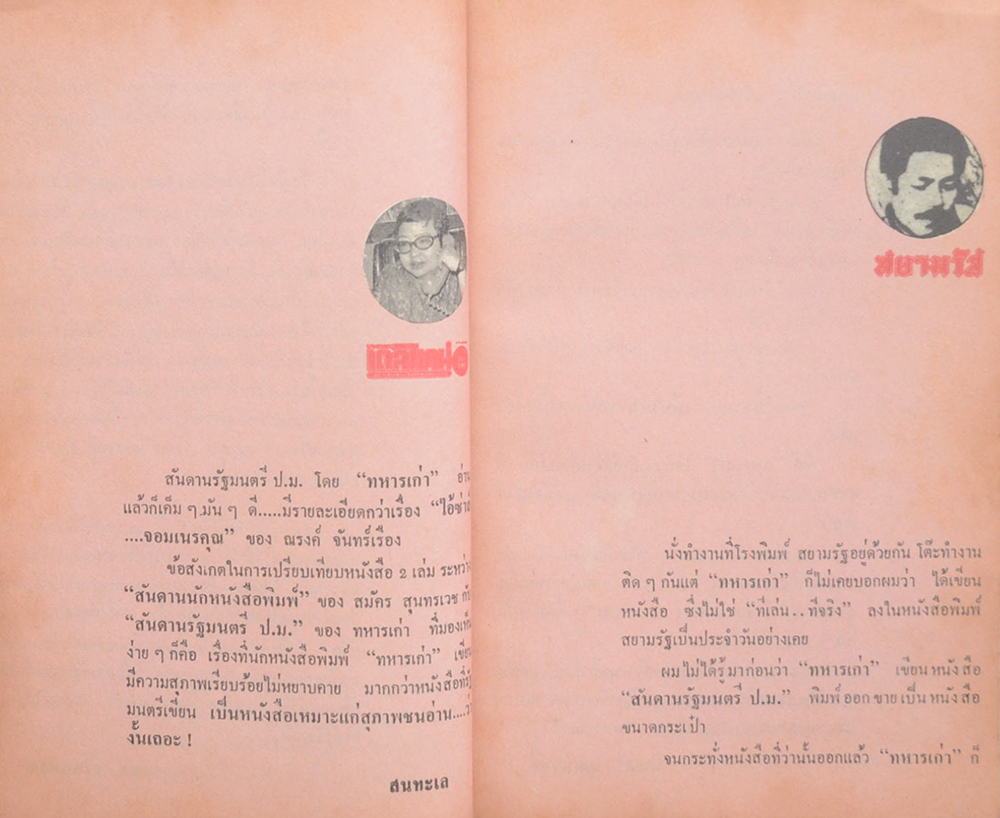 สันดานรัฐมนตรี ป.ม. โดย “ทหารเก่า” อ่าน
แล้วก็เค็ม ๆ มัน ๆ ดี.....มีรายละเอียดกว่าเรื่อง “ไอ้ซ่าส์
....จอมเนรคุณ” ของ ณรงค์ จันทร์เรือง
ข้อสังเกตในการเปรียบเทียบหนังสือ 2 เล่ม ระหว่าง
“สันดานนักหนังสือพิมพ์” ของ สมัคร สุนทรเวช กับ
“สันดานรัฐมนตรี ป.ม.” ของ ทหารเก่า ที่มองเห็น
ง่าย ๆ ก็คือ เรื่องที่นักหนังสือพิมพ์ “ทหารเก่า” เขียน
มีความสุภาพเรียบร้อยไม่หยาบคาย มากกว่าหนังสือที่รัฐ
มนตรีเขียน เป็นหนังสือเหมาะแก่สุภาพชนอ่าน....ว่า
งั้นเถอะ !
สนทะเล
สยามรัฐ
นั่งทำงานที่โรงพิมพ์ สยามรัฐอยู่ด้วยกัน โต๊ะทำงาน
ติด ๆ กันแต่ “ทหารเก่า” ก็ไม่เคยบอกผมว่า ได้เขียน
หนังสือ ซึ่งไม่ใช่ “ทีเล่น..ทีจริง” ลงในหนังสือพิมพ์
สยามรัฐเป็นประจำวันอย่างเคย
ผมไม่ได้รู้มาก่อนว่า “ทหารเก่า” เขียนหนังสือ
“สันดานรัฐมนตรี ป.ม.” พิมพ์ออกขายเป็นหนังสือ
ขนาดกระเป๋า
จนกระทั่งหนังสือที่ว่านั้นออกแล้ว “ทหารเก่า” ก็